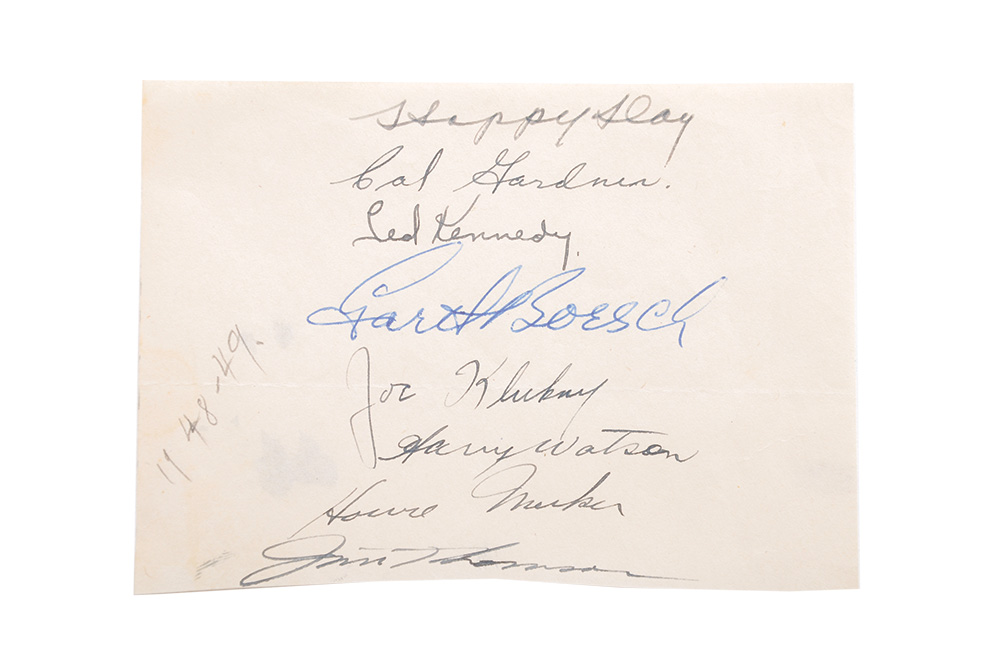 Happy Day
Cal Gardner.
Ted Kennedy.
Garth Boesch
Joe Klukay
Harry Watson
Howie Meeker
Jim Thomson
48-49.